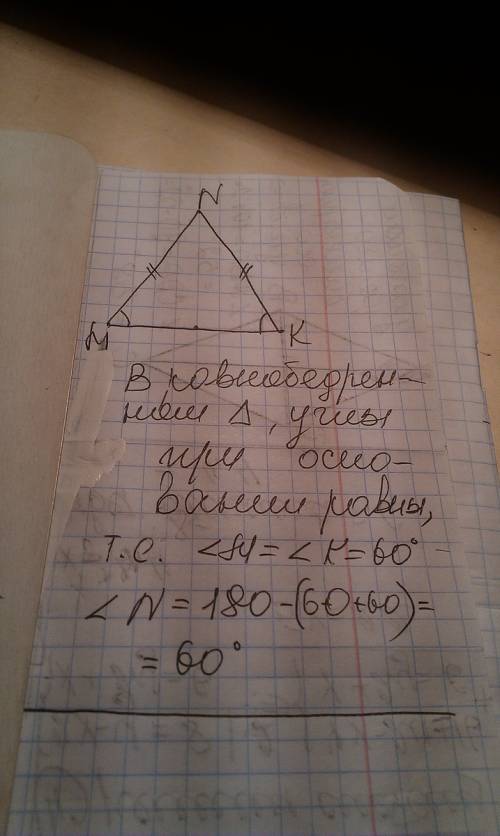 N
M K
В равнобедрен-
ном Δ, углы
при осно-
вании равны,
т.е. ∠M = ∠K = 60°
∠N = 180 - (60+60) =
= 60°